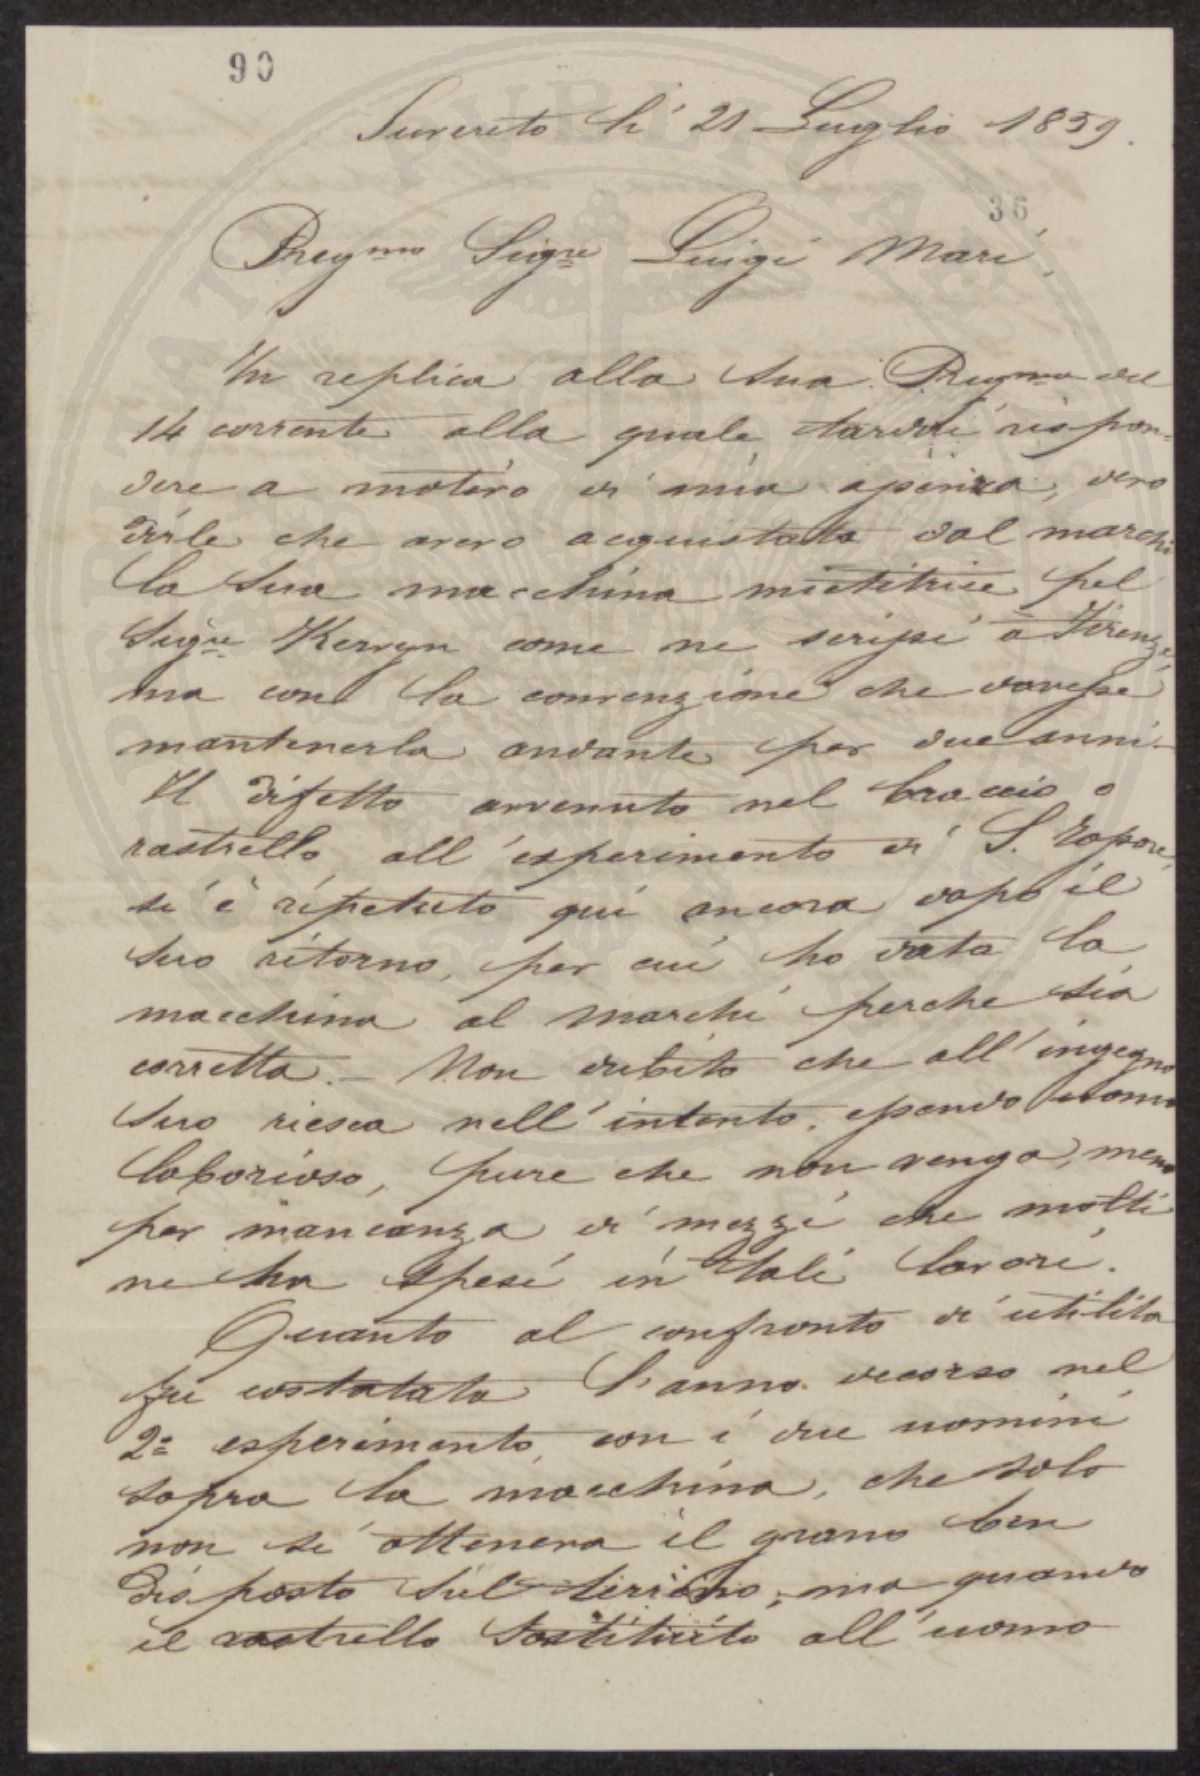 90
Suvereto lì 21 Luglio 1859.
36
Pregmo Sigre Luigi Mari,
In replica alla Sua Pregma del
14 corrente alla quale tardai rispon=
dere a motivo di mia assenza, devo
dirle che avevo acquistata dal Marchi
la Sua macchina mietitrice pel
Sigre Kerwyn come ne scrissi a Firenze,
ma con la convenzione che dovesse
mantenerla andante per due anni.-
Il difetto avvenuto nel braccio o
rastrello all'esperimento di S. Rossore,
si è ripetuto qui ancora dopo il
suo ritorno, per cui ho data la
macchina al Marchi perche sia
corretta.- Non dubito che all'ingegno
Suo riesca nell'intento, essendo uomo
laborioso, pure che non venga meno
per mancanza di mezzi che molti
ne ha spesi in tali lavori.
Quanto al confronto di utilita
fu costatata l'anno decorso nel
2º esperimento, con i due uomini
sopra la macchina, che solo
non si otteneva il grano ben
disposto sul terreno, ma quando
il rastrello sostituito all'uomo